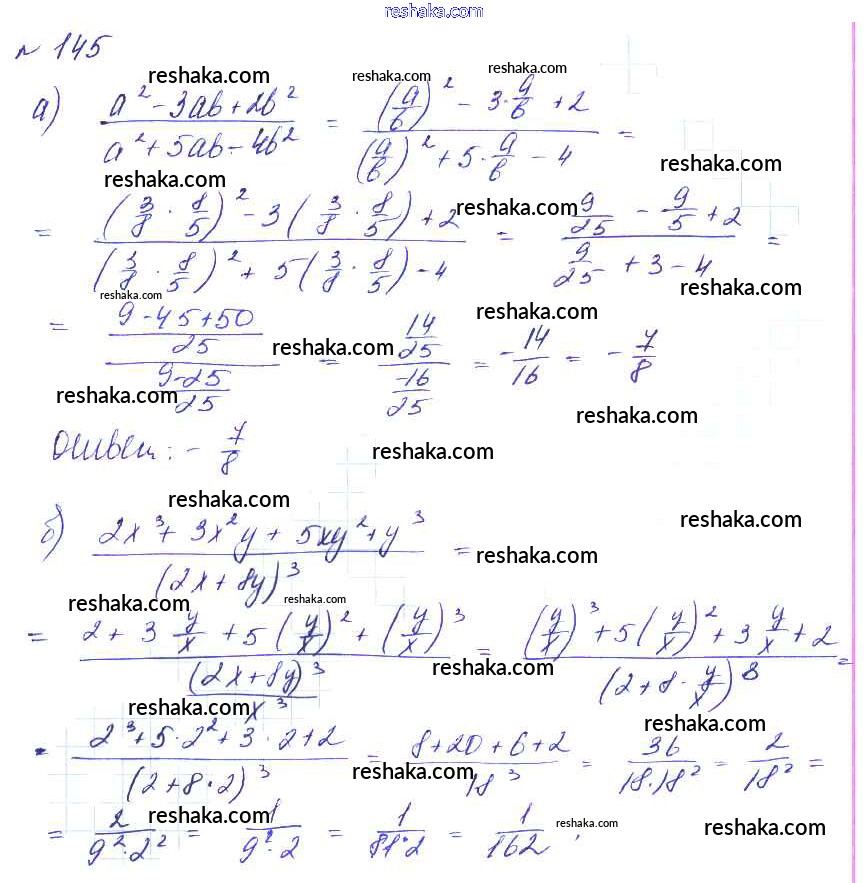 reshaka.com
№ 145
reshaka.com reshaka.com reshaka.com
а) (a² - 3ab + 2b²)/(a² + 5ab - 4b²) = ((a/b)² - 3·a/b + 2)/((a/b)² + 5·a/b - 4) =
reshaka.com reshaka.com
= ((3/8 · 8/5)² - 3(3/8 · 8/5) + 2)/((3/8 · 8/5)² + 5(3/8 · 8/5) - 4) = (9/25 - 9/5 + 2)/(9/25 + 3 - 4) =
reshaka.com reshaka.com reshaka.com
= ((9-45+50)/25)/((9-25)/25) = (14/25)/(-16/25) = -14/16 = -7/8
reshaka.com reshaka.com reshaka.com reshaka.com
Ответ: - 7/8
reshaka.com
reshaka.com reshaka.com
б) (2x³ + 3x²y + 5xy² + y³)/(2x + 8y)³ =
reshaka.com
reshaka.com reshaka.com
= (2 + 3 y/x + 5(y/x)² + (y/x)³)/((2x+8y)³/x³) = ((y/x)³ + 5(y/x)² + 3 y/x + 2)/(2 + 8·y/x)³ =
reshaka.com reshaka.com reshaka.com
= (2³ + 5·2² + 3·2 + 2)/(2 + 8·2)³ = (8+20+6+2)/18³ = 36/(18·18²) = 2/18² =
reshaka.com
= 2/(9²·2²) = 1/(9²·2) = 1/(81·2) = 1/162,
reshaka.com reshaka.com reshaka.com